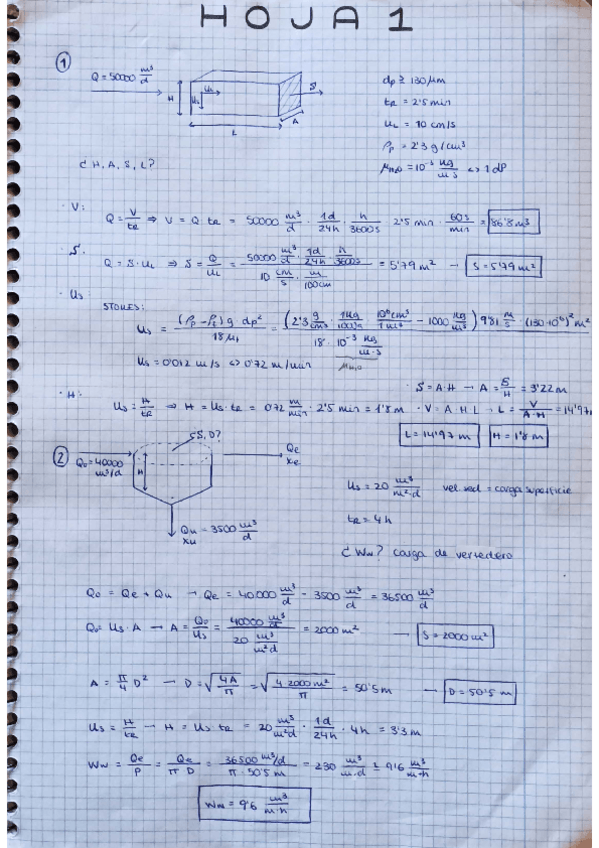 HOJA 1
1
Q = 50000 m³/d
H
us
uL
L
A
S
dp ≥ 130 µm
tR = 2'5 min
uL = 10 cm/s
ρp = 2'3 g/cm³
µH2O = 10⁻³ kg/m·s ↔ 1 dP
¿ H, A, S, L?
· V:
Q = V/tR ⇒ V = Q tR = 50000 m³/d · 1d/24h · h/3600s 2'5 min · 60s/min = 86'8 m³
· S:
Q = S·uL ⇒ S = Q/uL = (50000 m³/d · 1d/24h · h/3600s)/(10 cm/s · m/100cm) = 5'79 m² → S = 5'79 m²
· Us:
STOKES:
Us = (ρp - ρl) g dp²/18µl = (2'3 g/cm³ · 1kg/1000g · 10⁶cm³/1m³ - 1000 kg/m³) 9'81 m/s (130·10⁻⁶)² m²/18 · 10⁻³ kg/m·s
µH2O
Us = 0'012 m/s ↔ 0'72 m/min
· H:
Us = H/tR ⇒ H = Us·tR = 0'72 m/min · 2'5 min = 1'8 m
· S = A·H → A = S/H = 3'22 m
· V = A H L → L = V/A·H = 14'97
L = 14'97 m H = 1'8 m
2
Q0 = 40000 m³/d
H
¿S, D?
Qe
Xe
Qu = 3500 m³/d
Xu
Us = 20 m³/m²·d vel. sed = carga superficie
tR = 4h
¿ Ww? carga de vertedero
Q0 = Qe + Qu → Qe = 40.000 m³/d - 3500 m³/d = 36500 m³/d
Q0 = Us·A → A = Q0/Us = (40000 m³/d)/(20 m³/m²d) = 2000 m² → S = 2000 m²
A = π/4 D² → D = √(4A/π) = √(4·2000 m²/π) = 50'5 m → D = 50'5 m
Us = H/tR → H = Us tR = 20 m³/m²d · 1d/24h · 4h = 3'3 m
Ww = Qe/P = Qe/π D = (36500 m³/d)/(π · 50'5 m) = 230 m³/m·d ≃ 9'6 m³/m·h
Ww = 9'6 m³/m·h